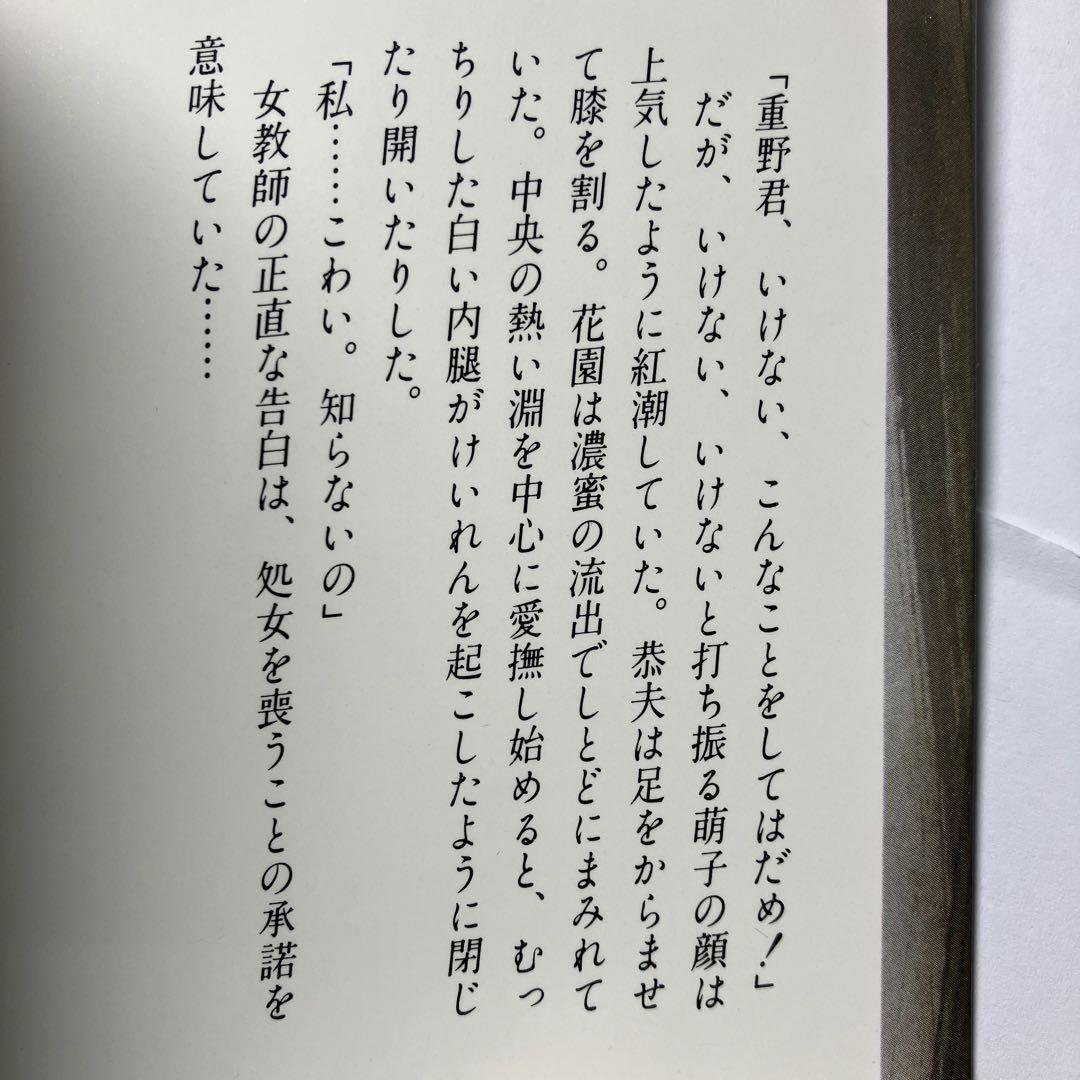 「重野君、いけない、こんなことをしてはだめ！」
だが、いけない、いけないと打ち振る萌子の顔は
上気したように紅潮していた。恭夫は足をからませ
て膝を割る。花園は濃蜜の流出でしとどにまみれて
いた。中央の熱い淵を中心に愛撫し始めると、むっ
ちりした白い内腿がけいれんを起こしたように閉じ
たり開いたりした。
「私……こわい。知らないの」
女教師の正直な告白は、処女を喪うことの承諾を
意味していた……